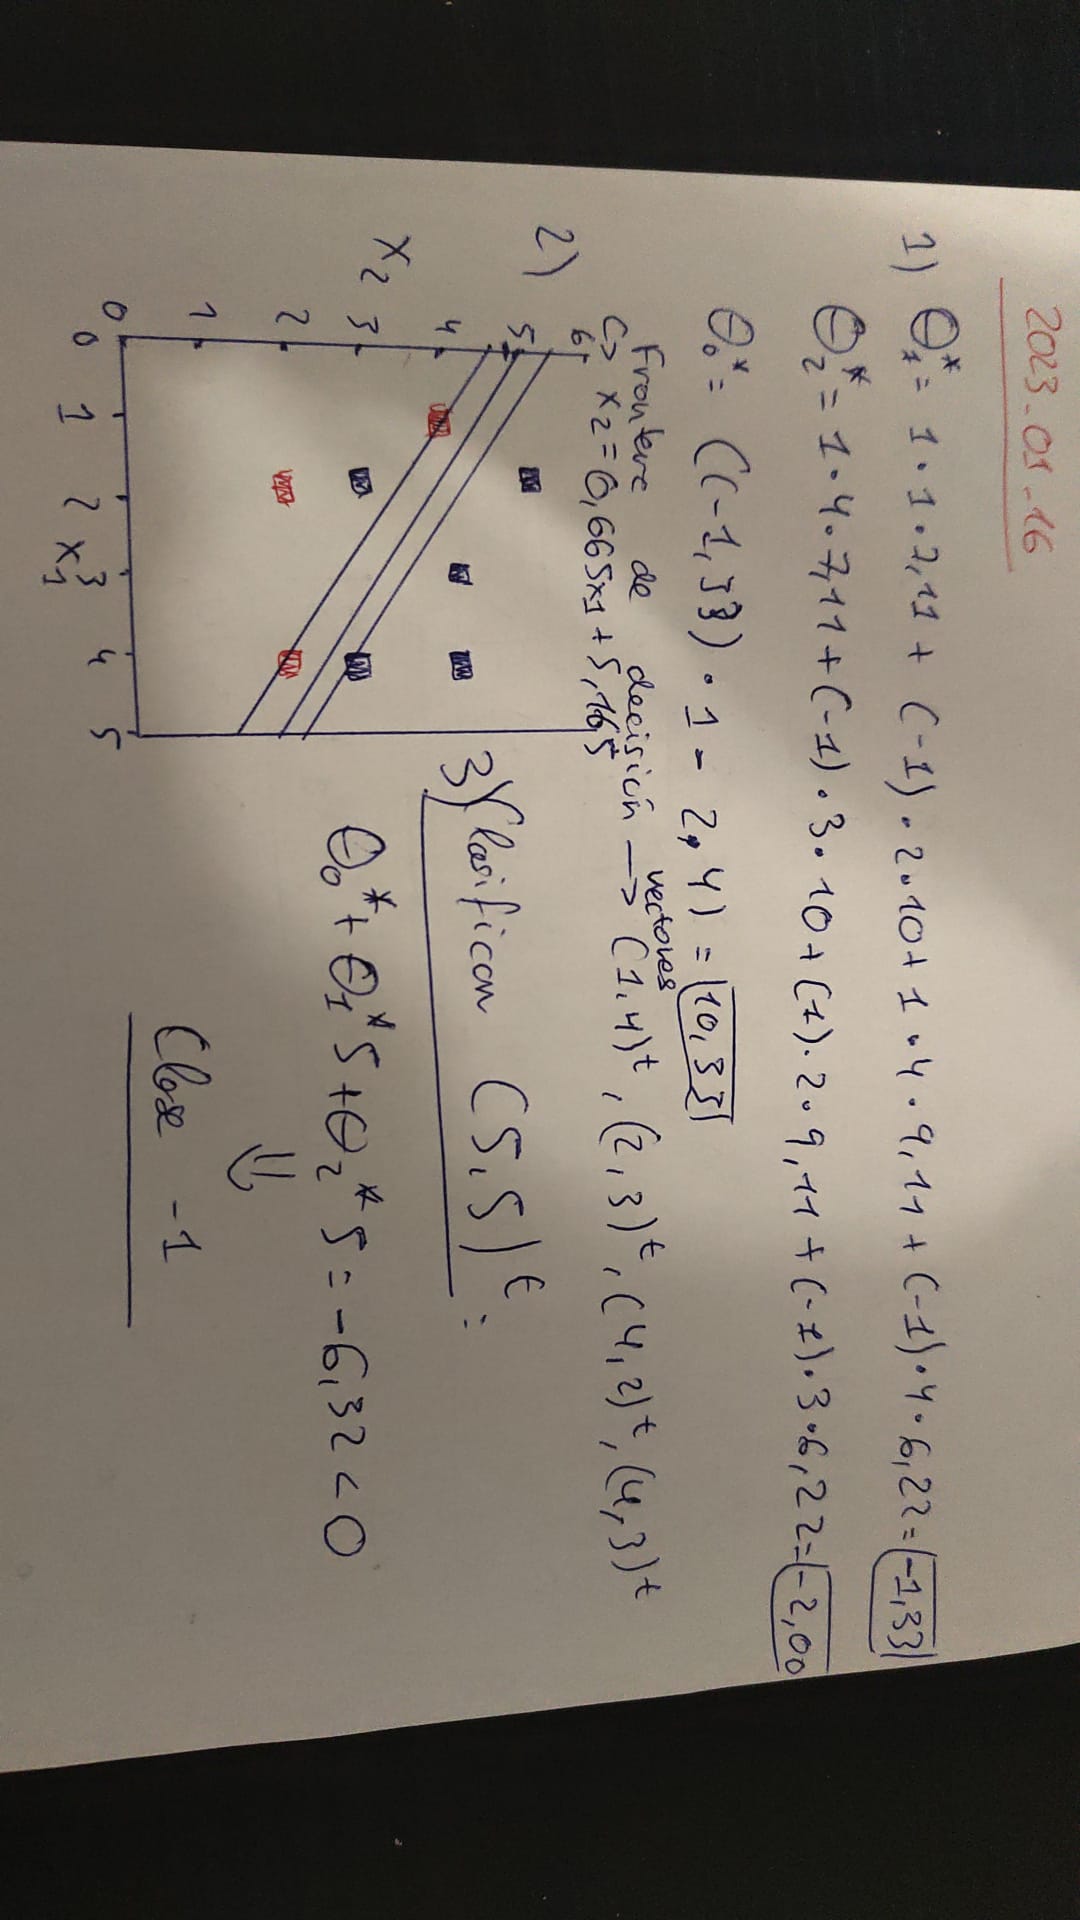 2023-01-16
1) θ₁* = 1·1·7,11 + (-1)·2·10 + 1·4·9,11 + (-1)·4·6,22 = -1,33
θ₂* = 1·4·7,11 + (-1)·3·10 + (1)·2·9,11 + (-1)·3·6,22 = -2,00
θ₀* = ((-1,33)·1 - 2,4) = 10,33
2) Frontera de decisión → vectores (1,4)ᵗ, (2,3)ᵗ, (4,2)ᵗ, (4,3)ᵗ
↳ x₂ = 0,665x₁ + 5,165
6
5
4
3
2
1
0
x₂
0 1 2 3 4 5
x₁
3) Clasifican (5,5)ᵗ:
θ₀* + θ₁* 5 + θ₂* 5 = -6,32 < 0
⇓
Clase -1